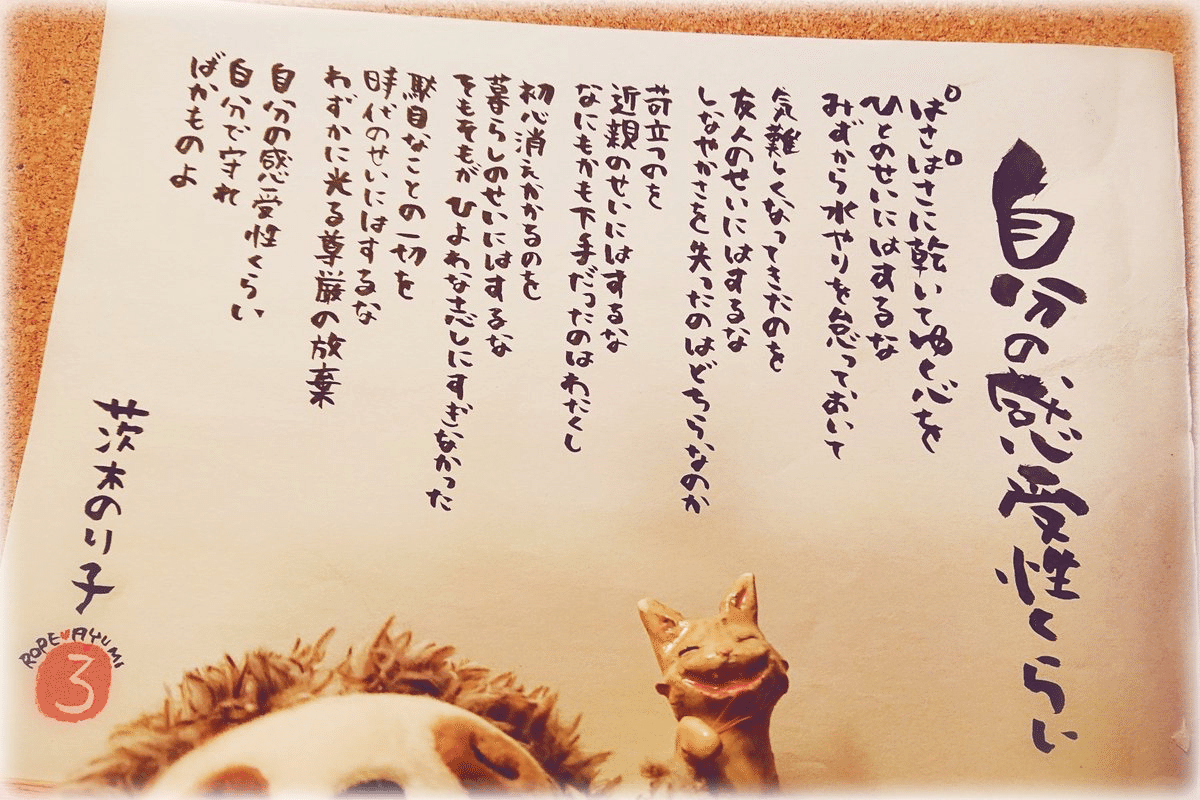 自分の感受性くらい
ぱさぱさに乾いてゆく心を
ひとのせいにはするな
みずから水やりを怠っておいて
気難しくなってきたのを
友人のせいにはするな
しなやかさを失ったのはどちらなのか
苛立つのを
近親のせいにはするな
なにもかも下手だったのはわたくし
初心消えかかるのを
暮らしのせいにはするな
そもそもが ひよわな志しにすぎなかった
駄目なことの一切を
時代のせいにはするな
わずかに光る尊厳の放棄
自分の感受性くらい
自分で守れ
ばかものよ
茨木のり子
ROPE♥AYUMI
3